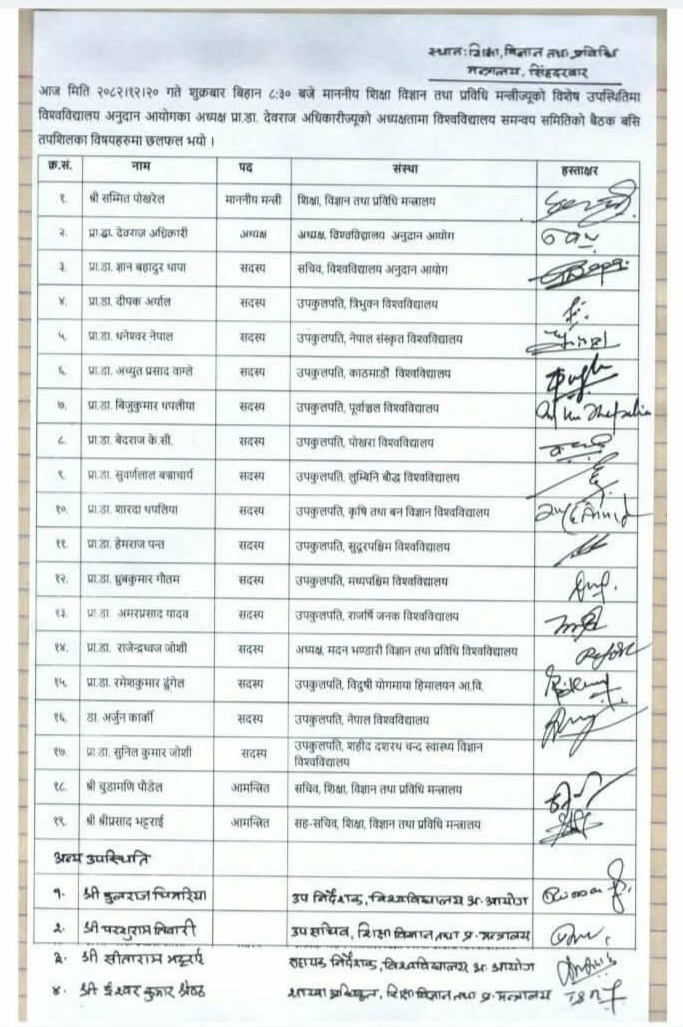 स्थान: शिक्षा, विज्ञान तथा प्रविधि
मन्त्रालय, सिंहदरवार
आज मिति २०८२।१२।२० गते शुक्रबार बिहान ८:३० बजे माननीय शिक्षा विज्ञान तथा प्रविधि मन्त्रीज्यूको विशेष उपस्थितिमा
विश्वविद्यालय अनुदान आयोगका अध्यक्ष प्रा.डा. देवराज अधिकारीज्यूको अध्यक्षतामा विश्वविद्यालय समन्वय समितिको बैठक बसि
तपशिलका विषयहरुमा छलफल भयो ।
क्र.सं. नाम पद संस्था हस्ताक्षर
१. श्री सस्मित पोखरेल माननीय मन्त्री शिक्षा, विज्ञान तथा प्रविधि मन्त्रालय
२. प्रा.डा. देवराज अधिकारी अध्यक्ष अध्यक्ष, विश्वविद्यालय अनुदान आयोग
३. प्रा.डा. ज्ञान बहादुर थापा सदस्य सचिव, विश्वविद्यालय अनुदान आयोग
४. प्रा.डा. दीपक अर्याल सदस्य उपकुलपति, त्रिभुवन विश्वविद्यालय
५ प्रा.डा. धनेश्वर नेपाल सदस्य उपकुलपति, नेपाल संस्कृत विश्वविद्यालय
६. प्रा.डा. अच्युत प्रसाद वाग्ले सदस्य उपकुलपति, काठमाडौं विश्वविद्यालय
७. प्रा.डा. बिजुकुमार थपलीया सदस्य उपकुलपति, पूर्वाञ्चल विश्वविद्यालय
८. प्रा.डा. बेदराज के.सी. सदस्य उपकुलपति, पोखरा विश्वविद्यालय
९. प्रा.डा. सुवर्णलाल बज्राचार्य सदस्य उपकुलपति, लुम्बिनि बौद्ध विश्वविद्यालय
१०. प्रा.डा. शारदा थपलिया सदस्य उपकुलपति, कृषि तथा बन विज्ञान विश्वविद्यालय
११. प्रा.डा. हेमराज पन्त सदस्य उपकुलपति, सुदूरपश्चिम विश्वविद्यालय
१२. प्रा.डा. ध्रुबकुमार गौतम सदस्य उपकुलपति, मध्यपश्चिम विश्वविद्यालय
१३. प्रा.डा. अमरप्रसाद यादव सदस्य उपकुलपति, राजर्षि जनक विश्वविद्यालय
१४. प्रा.डा. राजेन्द्रध्वज जोशी सदस्य अध्यक्ष, मदन भण्डारी विज्ञान तथा प्रविधि विश्वविद्यालय
१५ प्रा.डा. रमेशकुमार ढुंगेल सदस्य उपकुलपति, विदुषी योगमाया हिमालयन आ.वि.
१६. डा. अर्जुन कार्की सदस्य उपकुलपति, नेपाल विश्वविद्यालय
१७. प्रा.डा. सुनिल कुमार जोशी सदस्य उपकुलपति, शहीद दशरथ चन्द स्वास्थ्य विज्ञान
विश्वविद्यालय
१८. श्री चुडामणि पौडेल आमन्त्रित सचिव, शिक्षा, विज्ञान तथा प्रविधि मन्त्रालय
१९. श्री श्रीप्रसाद भट्टराई आमन्त्रित सह-सचिव, शिक्षा, विज्ञान तथा प्रविधि मन्त्रालय
अन्य उपस्थिति
१. श्री दुलराज घिमरिया उप निर्देशक, विश्वविद्यालय अ. आयोग
२. श्री परशुराम तिवारी उप सचिव, शिक्षा विज्ञान तथा प्र. मन्त्रालय
३. श्री सीताराम भट्टराई सहायक निर्देशक, विश्वविद्यालय अ. आयोग
४. श्री ईश्वर कुमार श्रेष्ठ शाखा अधिकृत, शिक्षा विज्ञान तथा प्र. मन्त्रालय